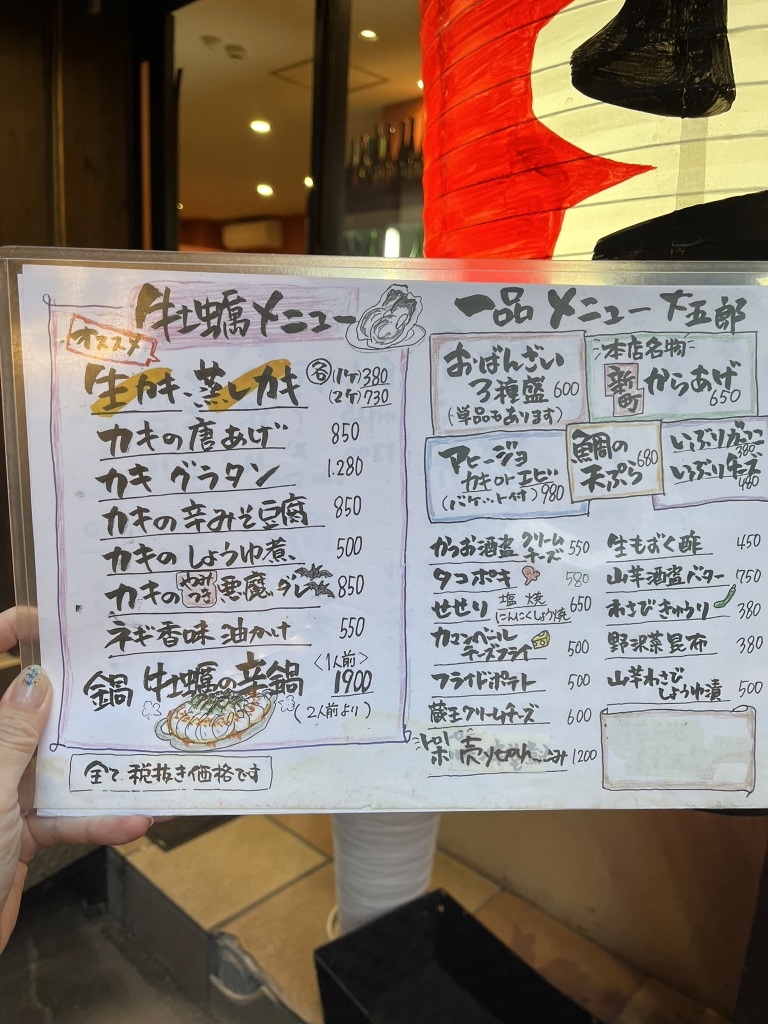 牡蠣メニュー
オススメ
生カキ、蒸しカキ 各(1ケ)380
(2ケ)730
カキの唐あげ 850
カキグラタン 1.280
カキの辛みそ豆腐 850
カキのしょうゆ煮、 500
カキのやみつき悪魔ダレ 850
ネギ香味油かけ 550
鍋 牡蠣の辛鍋 <1人前> 1900
(2人前より)
全て税抜き価格です
一品メニュー 大五郎
おばんざい
3種盛 600
(単品もあります)
本店名物
新町 からあげ
650
アヒージョ
カキ or エビ
(バケット付) 980
鯛の
天ぷら 680
いぶりガッコ
380
いぶりチーズ
480
かつお酒盗クリームチーズ 550
タコポキ 580
せせり 塩焼 にんにくしょうゆ焼 650
カマンベールチーズフライ 500
フライドポテト 500
蔵王クリームチーズ 600
売り切れ 1200
生もずく酢 450
山芋酒盗バター 750
わさびきゅうり 380
野沢菜昆布 380
山芋わさび
しょうゆ漬 500